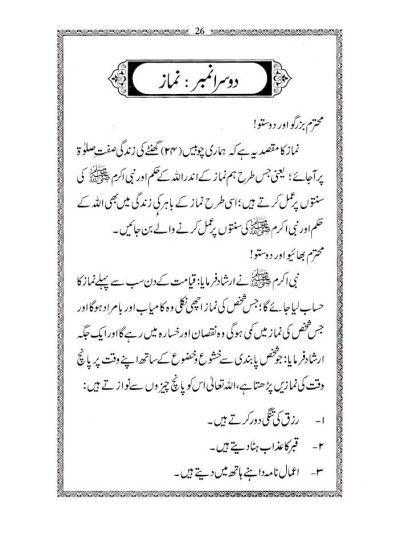 26
دوسرا نمبر : نماز
محترم بزرگو اور دوستو!
نماز کا مقصد یہ ہے کہ ہماری چوبیس (۲۴) گھنٹے کی زندگی صفتِ صلوٰۃ
پر آجائے؛ یعنی جس طرح ہم نماز کے اندر اللہ کے حکم اور نبی اکرم ﷺ کی
سنتوں پر عمل کرتے ہیں؛ اسی طرح نماز کے باہر کی زندگی میں بھی اللہ کے
حکم اور نبی اکرم ﷺ کی سنتوں پر عمل کرنے والے بن جائیں۔
محترم بھائیو اور دوستو!
نبی اکرم ﷺ نے ارشاد فرمایا: قیامت کے دن سب سے پہلے نماز کا
حساب لیا جائے گا؛ جس شخص کی نماز اچھی نکلی وہ کامیاب اور بامراد ہوگا اور
جس شخص کی نماز میں کمی ہوگی وہ نقصان اور خسارہ میں رہے گا اور ایک جگہ
ارشاد فرمایا: جو شخص پابندی سے خشوع و خضوع کے ساتھ اپنے وقت پر پانچ
وقت کی نمازیں پڑھتا ہے، اللہ تعالیٰ اس کو پانچ چیزوں سے نوازتے ہیں:
۱- رزق کی تنگی دور کرتے ہیں۔
۲- قبر کا عذاب ہٹا دیتے ہیں۔
۳- اعمال نامہ داہنے ہاتھ میں دیتے ہیں۔